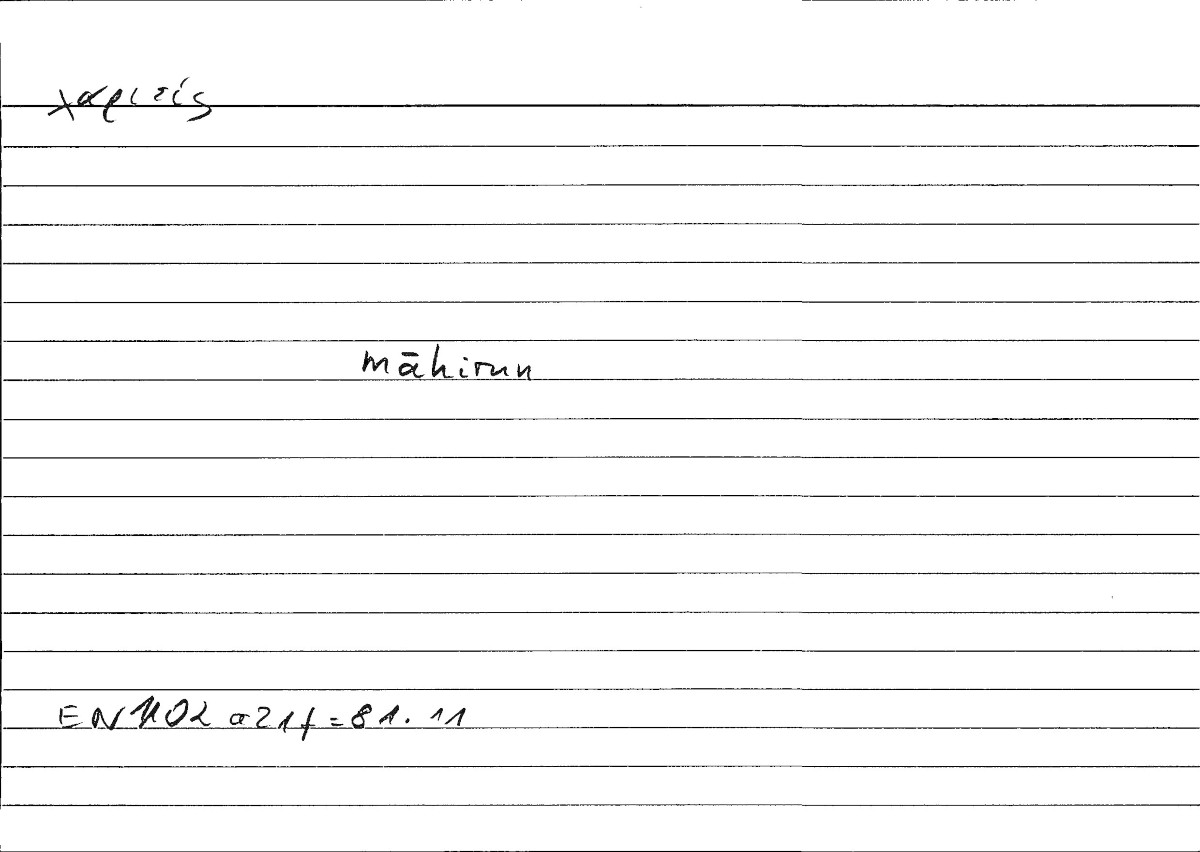 χαριείς
māhirun
EN 1102 a 21 f = 81. 11